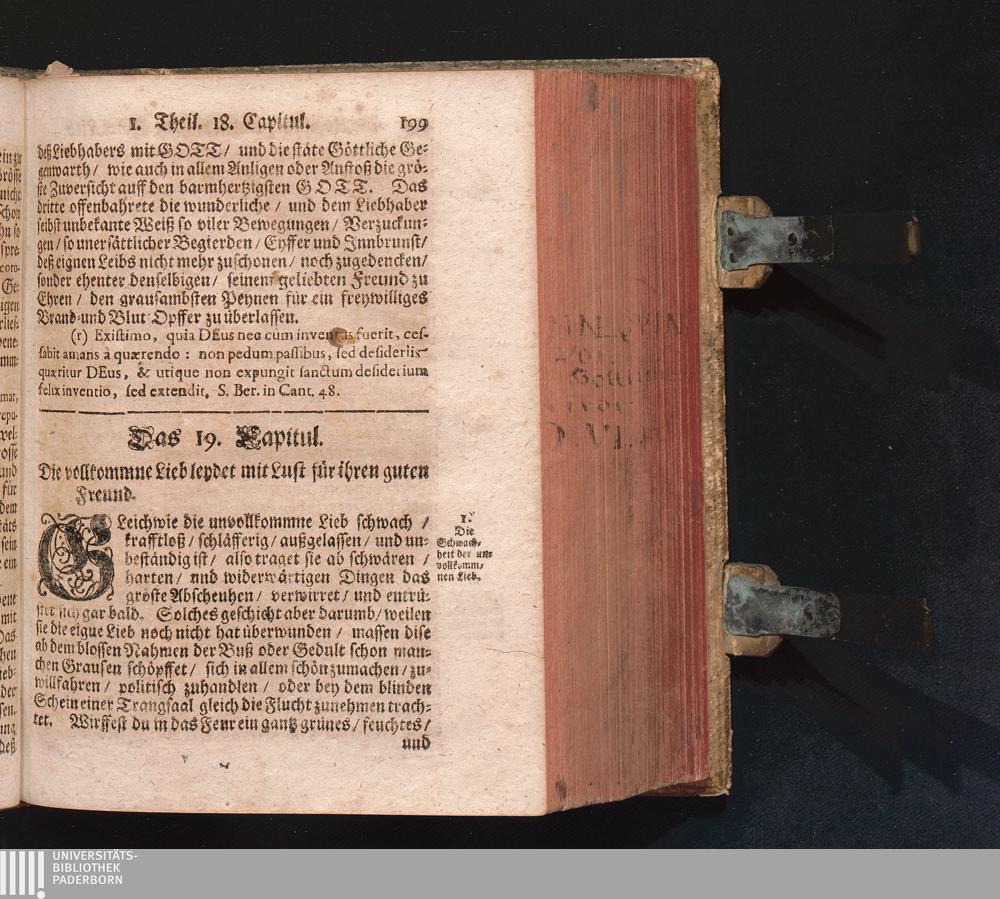 1. Theil. 18. Capitul. 199
deß Liebhabers mit GOTT / und die stäte Göttliche Ge-
genwarth / wie auch in allem Anligen oder Anstoß die grö-
ste Zuversicht auff den barmhertzigsten GOTT. Das
dritte offenbahrete die wunderliche / und dem Liebhaber
selbst unbekante Weiß so viler Bewegungen / Verzuckun-
gen / so unersättlicher Begierden / Eyffer und Innbrunst /
deß eignen Leibs nicht mehr zuschonen / noch zugedencken /
sonder ehenter denselbigen / seinem geliebten Freund zu
Ehren / den grausambsten Peynen für ein freywilliges
Brand-und Blut Opffer zu überlassen.
(r) Existimo, quia DEus nec cum inventus fuerit, ces-
sabit amans à quærendo : non pedum passibus, sed desideriis
quæritur DEus, & utique non expungit sanctum desiderium
felix inventio, sed extendit. S. Ber. in Cant. 48.
Das 19. Capitul.
Die vollkommne Lieb leydet mit Lust für ihren guten
Freund.
GLeichwie die unvollkommne Lieb schwach /
krafftloß / schläfferig / außgelassen / und un-
beständig ist / also traget sie ab schwären /
harten / und widerwärtigen Dingen das
gröste Abscheuhen / verwirret / und entrü-
stet sich gar bald. Solches geschicht aber darumb / weilen
sie die eigne Lieb noch nicht hat überwunden / massen dise
ab dem blossen Nahmen der Buß oder Gedult schon man-
chen Grausen schöpffet / sich in allem schön zumachen / zu-
willfahren / politisch zuhandlen / oder bey dem blinden
Schein einer Trangsaal gleich die Flucht zunehmen trach-
tet. Wirffest du in das Feur ein gantz grünes / feuchtes /
und
1.
Die
Schwach-
heit der un-
vollkomm-
nen Lieb.
UNIVERSITÄTS-
BIBLIOTHEK
PADERBORN